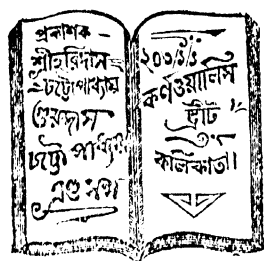 প্রকাশক—
শ্রীহরিদাস
চট্টোপাধ্যায়
গুরুদাস
চট্টোপাধ্যায়
এণ্ড সন্স
২০৩।১।১
কর্ণওয়ালিস
ষ্ট্রীট
কলিকাতা।